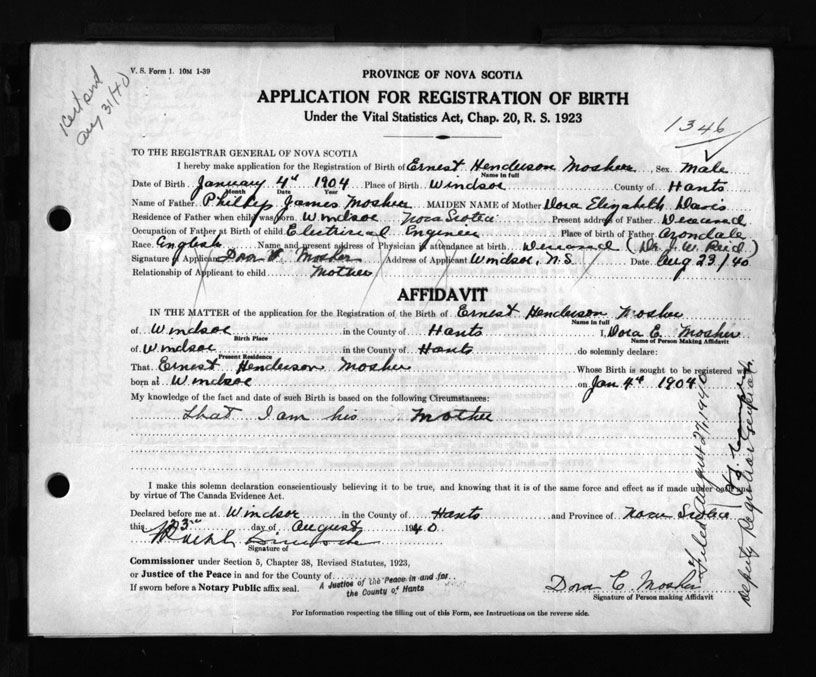 V. S. Form 1. 10M 1-39
Cert and
Aug 31/40
PROVINCE OF NOVA SCOTIA
APPLICATION FOR REGISTRATION OF BIRTH
Under the Vital Statistics Act, Chap. 20, R. S. 1923
1346
TO THE REGISTRAR GENERAL OF NOVA SCOTIA
I hereby make application for the Registration of Birth of Ernest Henderson Mosher Sex Male
Name in full
Date of Birth January 4th 1904 Place of Birth Windsor County of Hants
Month Date Year
Name of Father Philley James Mosher MAIDEN NAME of Mother Dora Elizabeth Davis
Residence of Father when child was born Windsor Nova Scotia Present address of Father Deceased
Occupation of Father at Birth of child Electrical Engineer Place of birth of Father Avondale
Race English Name and present address of Physician in attendance at birth Deceased (Dr. J. W. Reid)
Signature of Applicant Dora E. Mosher Address of Applicant Windsor, N.S. Date Aug 23/40
Relationship of Applicant to child Mother
AFFIDAVIT
IN THE MATTER of the application for the Registration of the Birth of Ernest Henderson Mosher
Name in full
of Windsor in the County of Hants I, Dora E. Mosher
Birth Place Name of Person Making Affidavit
of Windsor in the County of Hants do solemnly declare:
Present Residence
That Ernest Henderson Mosher Whose Birth is sought to be registered was
born at Windsor on Jan 4th 1904
My knowledge of the fact and date of such Birth is based on the following Circumstances:
that I am his Mother
I make this solemn declaration conscientiously believing it to be true, and knowing that it is of the same force and effect as if made under oath and
by virtue of The Canada Evidence Act.
Declared before me at Windsor in the County of Hants and Province of Nova Scotia
this 23rd day of August 1940
Signature of
Commissioner under Section 5, Chapter 38, Revised Statutes, 1923,
or Justice of the Peace in and for the County of
A Justice of the Peace in and for
the County of Hants
If sworn before a Notary Public affix seal.
Dora E. Mosher
Signature of Person making Affidavit
For Information respecting the filling out of this Form, see Instructions on the reverse side.
Filed August 27, 1940
Deputy Registrar General